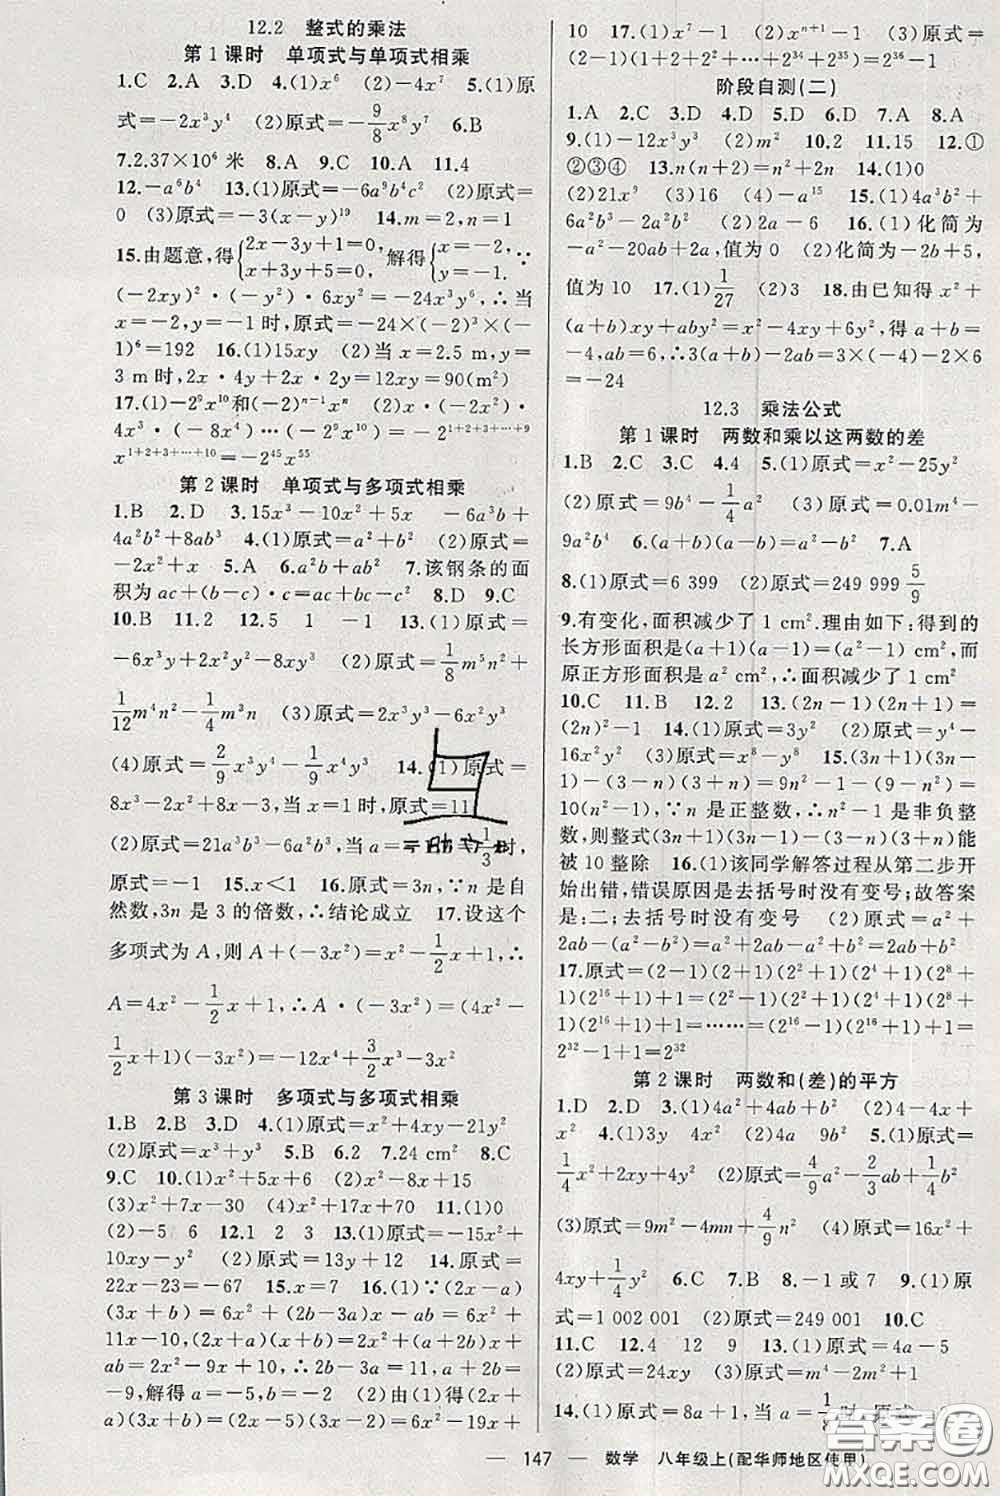 12.2 整式的乘法
第1课时 单项式与单项式相乘
1.C 2.A 3.D 4.(1)x⁶ (2)-4x⁷ 5.(1)原
式=-2x³y⁴ (2)原式=-9/8x⁸y⁷ 6.B
7.2.37×10⁶ 米 8.A 9.C 10.A 11.4
12.-a⁶b⁴ 13.(1)原式=-6a⁹b⁴c² (2)原式=
0 (3)原式=-3(x-y)¹⁹ 14.m=2,n=1
15.由题意,得{2x-3y+1=0, x+3y+5=0, 解得{x=-2, y=-1. ∵
(-2xy)²·(-y²)·6xy²=-24x³y⁶,∴当
x=-2,y=-1时,原式=-24×(-2)³×(-
1)⁶=192 16.(1)15xy (2)当x=2.5 m,y=
3 m时,2x·4y+2x·2y=12xy=90(m²)
17.(1)-2⁹x¹⁰和(-2)ⁿ⁻¹xⁿ (2)x·(-2x²)·
4x³·(-8x⁴)…=-2¹⁺²⁺³⁺…⁺⁹
x¹⁺²⁺³⁺…⁺¹⁰=-2⁴⁵x⁵⁵
第2课时 单项式与多项式相乘
1.B 2.D 3.15x³-10x²+5x -6a³b+
4a²b²+8ab³ 4.(1)原式=a²+b² (2)原式=
-2x²+x 5.A 6.a²b+ab² 7.该钢条的面
积为ac+(b-c)·c=ac+bc-c² 8.D 9.C
10.B 11.2 12.5 1 -1 13.(1)原式=
-6x³y+2x²y²-8xy³ (2)原式=1/8m⁵n²+
1/12m⁴n²-1/4m³n (3)原式=2x³y³-6x²y³
(4)原式=2/9x³y⁴-1/9x⁴y³ 14.(1)原式=
8x³-2x²+3x,当x=1时,原式=11
(2)原式=21a³b³-6a²b²,当
原式=-1 15.x<1 16.原式=3n,∵n是自
然数,3n是3的倍数,∴结论成立 17.设这个
多项式为A,则A+(-3x²)=x²-1/2x+1,∴
A=4x²-1/2x+1,∴A·(-3x²)=(4x²-
1/2x+1)(-3x²)=-12x⁴+3/2x³-3x²
第3课时 多项式与多项式相乘
1.B 2.B 3.D 4.(1)原式=x²+4xy-21y²
(2)原式=x³+y³ 5.B 6.2 7.24 cm² 8.C
9.C 10.(1)x²+5x+6 (2)x²-8x+15
(3)x²+7x-30 (4)x²+17x+70 11.(1)0
(2)-5 6 12.1 2 3 13.(1)原式=-15x²+
10xy-y² (2)原式=13y+12 14.原式=
22x-23=-67 15.x=7 16.(1)∵(2x-a)
(3x+b)=6x²+(2b-3a)x-ab=6x²+
11x-10,(2x+a)(x+b)=2x²+(a+2b)x+
ab=2x²-9x+10,∴2b-3a=11,a+2b=
-9,解得a=-5,b=-2 (2)由(1)得(2x+
a)(3x+b)=(2x-5)(3x-2)=6x²-19x+
10 17.(1)x⁷-1 (2)xⁿ⁺¹-1 (3)原式=
(2-1)(1+2+2²+…+2³⁴+2³⁵)=2³⁶-1
阶段自测(二)
1.A 2.C 3.D 4.D 5.D 6.D 7.A 8.A
9.(1)-12x³y³ (2)m² 10.2 11.15 12.①
②③④ 13.n(n+2)=n²+2n 14.(1)0
(2)21x⁹ (3)16 (4)-a¹⁵ 15.(1)4a³b²+
6a²b³-2a²b² (2)2a-6 16.(1)化简为
-a²-20ab+2a,值为0 (2)化简为-2b+5,
值为10 17.(1)1/27 (2)3 18.由已知得x²+
(a+b)xy+aby²=x²-4xy+6y²,得a+b=
-4,ab=6,∴3(a+b)-2ab=3×(-4)-2×6
=-24
12.3 乘法公式
第1课时 两数和乘以这两数的差
1.B 2.C 3.C 4.4 5.(1)原式=x²-25y²
(2)原式=9b⁴-1/4a² (3)原式=0.01m⁴-
9a²b⁴ 6.(a+b)(a-b)=a²-b² 7.A
8.(1)原式=6 399 (2)原式=249 999 5/9
9.有变化,面积减少了1 cm².理由如下:得到的
长方形面积是(a+1)(a-1)=(a²-1) cm²,而
原正方形面积是a² cm²,∴面积减少了1 cm²
10.C 11.B 12.2 13.(2n-1)(2n+1)=
(2n)²-1 14.(1)原式=3y² (2)原式=y⁴-
16x²y² (3)原式=x⁸-y⁸ 15.(3n+1)(3n
-1)-(3-n)(3+n)=9n²-1-(9-n²)=
10(n²-1),∵n是正整数,∴n²-1是非负整
数,则整式(3n+1)(3n-1)-(3-n)(3+n)能
被10整除 16.(1)该同学解答过程从第二步开
始出错,错误原因是去括号时没有变号;故答案
是:二;去括号时没有变号 (2)原式=a²+
2ab-(a²-b²)=a²+2ab-a²+b²=2ab+b²
17.原式=(2-1)(2+1)(2²+1)(2⁴+1)(2⁸+
1)(2¹⁶+1)+1=(2²-1)(2²+1)(2⁴+1)(2⁸+
1)(2¹⁶+1)+1=……=(2¹⁶-1)(2¹⁶+1)+1=
2³²-1+1=2³²
第2课时 两数和(差)的平方
1.D 2.D 3.(1)4a²+4ab+b² (2)4-4x+
x² 4.(1)3y 4x² (2)4a 9b² 5.(1)原式=
1/4x²+2xy+4y² (2)原式=4/9a²-2/3ab+1/4b²
(3)原式=9m²-4mn+4/9n² (4)原式=16x²+
4xy+1/4y² 6.C 7.B 8.-1或7 9.(1)原
式=1 002 001 (2)原式=249 001 10.C
11.C 12.4 12 9 13.(1)原式=4a-5
(2)原式=24xy (3)原式=m⁴-2m²+1
14.(1)原式=8a+1,当a=1/8时,原式=
— 147 — 数学 八年级上(配华师地区使用)
答案圈
MXQE.COM